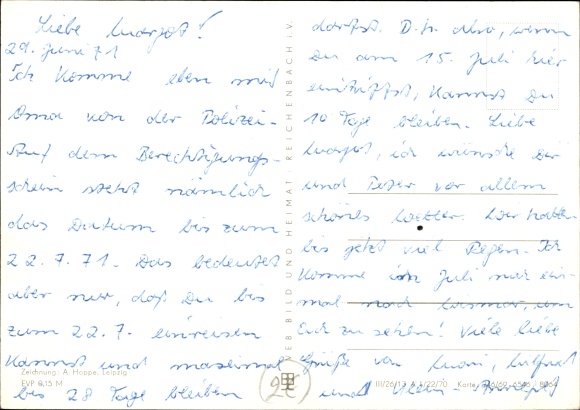 Liebe Margot!
29. Juni 71
Ich komme eben mit
Oma von der Polizei.
Auf dem Berechtigungs-
schein steht nämlich
das Datum bis zum
22.7.71. Das bedeutet
aber nur, daß Du bis
zum 22.7. einreisen
kannst und maximal
bis 28 Tage bleiben
darfst. D.h. also, wenn
Du am 15. Juli hier
eintriffst, kannst Du
10 Tage bleiben. Liebe
Margot, ich wünsche Dir
und Peter vor allem
schönes Wetter. Wir hatten
bis jetzt viel Regen. Ich
komme im Juli noch ein-
mal nach Wismar, um
Euch zu sehen! Viele liebe
Grüße von
und klein-
VEB BILD UND HEIMAT REICHENBACH i. V.
Zeichnung: A. Hoppe, Leipzig
EVP 0,15 M
2€
III/26/13